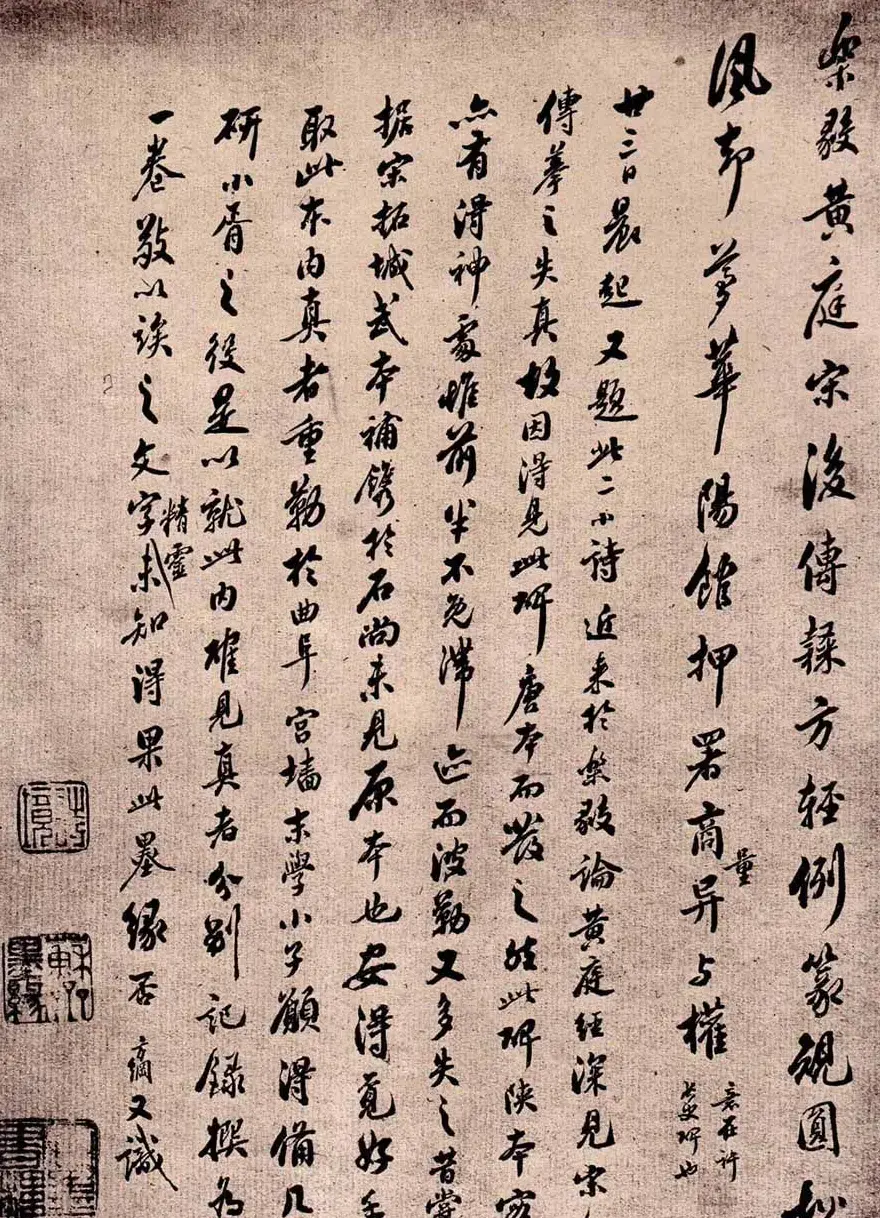 樂毅黃庭宋後傳隸方輕例篆視圓
風却夢華陽館押署商量异与權 意在許長史碑也
廿三日晨起又題此二小詩近來於樂毅論黃庭經深見宋
傳摹之失真故因得見此碑唐本而發之然此碑陝本
亦有得神處惟前半不免滯迹而波勒又多失之昔嘗
据宋拓城武本補鐫於石尚未見原本也安得覓好手
取此本內真者重勒於曲阜宮墻末學小子願得備几
研小胥之役是以就此內確見真者分別記錄撰為
一卷敬以誒之文字精靈未知得果此墨緣否 方綱又識